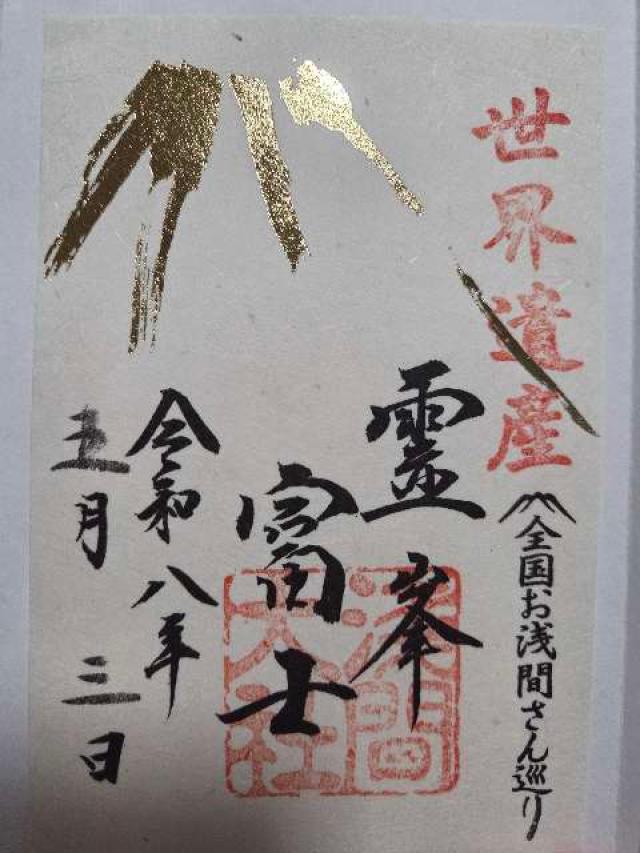 世界遺産
全国お浅間さん巡り
霊峯
富士
浅間
大社
令和八年
五月三日